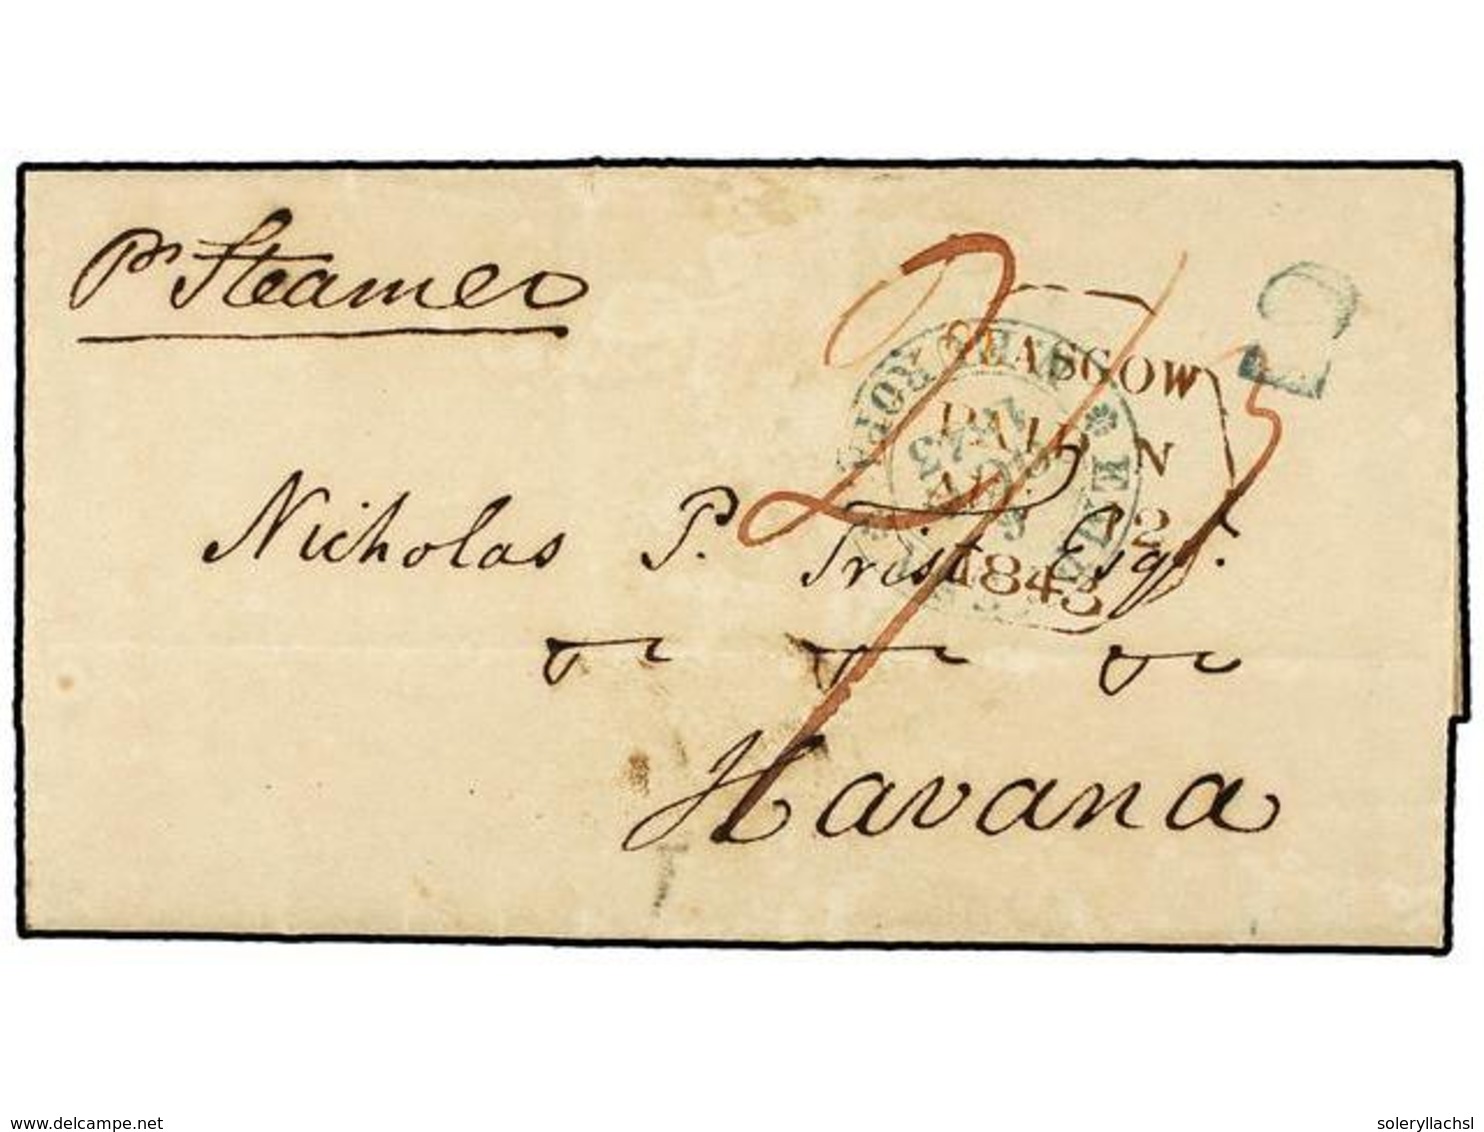 Pr Steamer
2/3
GLASGOW
PAID N
2
1843
Nicholas P. Trist Esqr.
Havana
delcampe.net
soleryllachsl